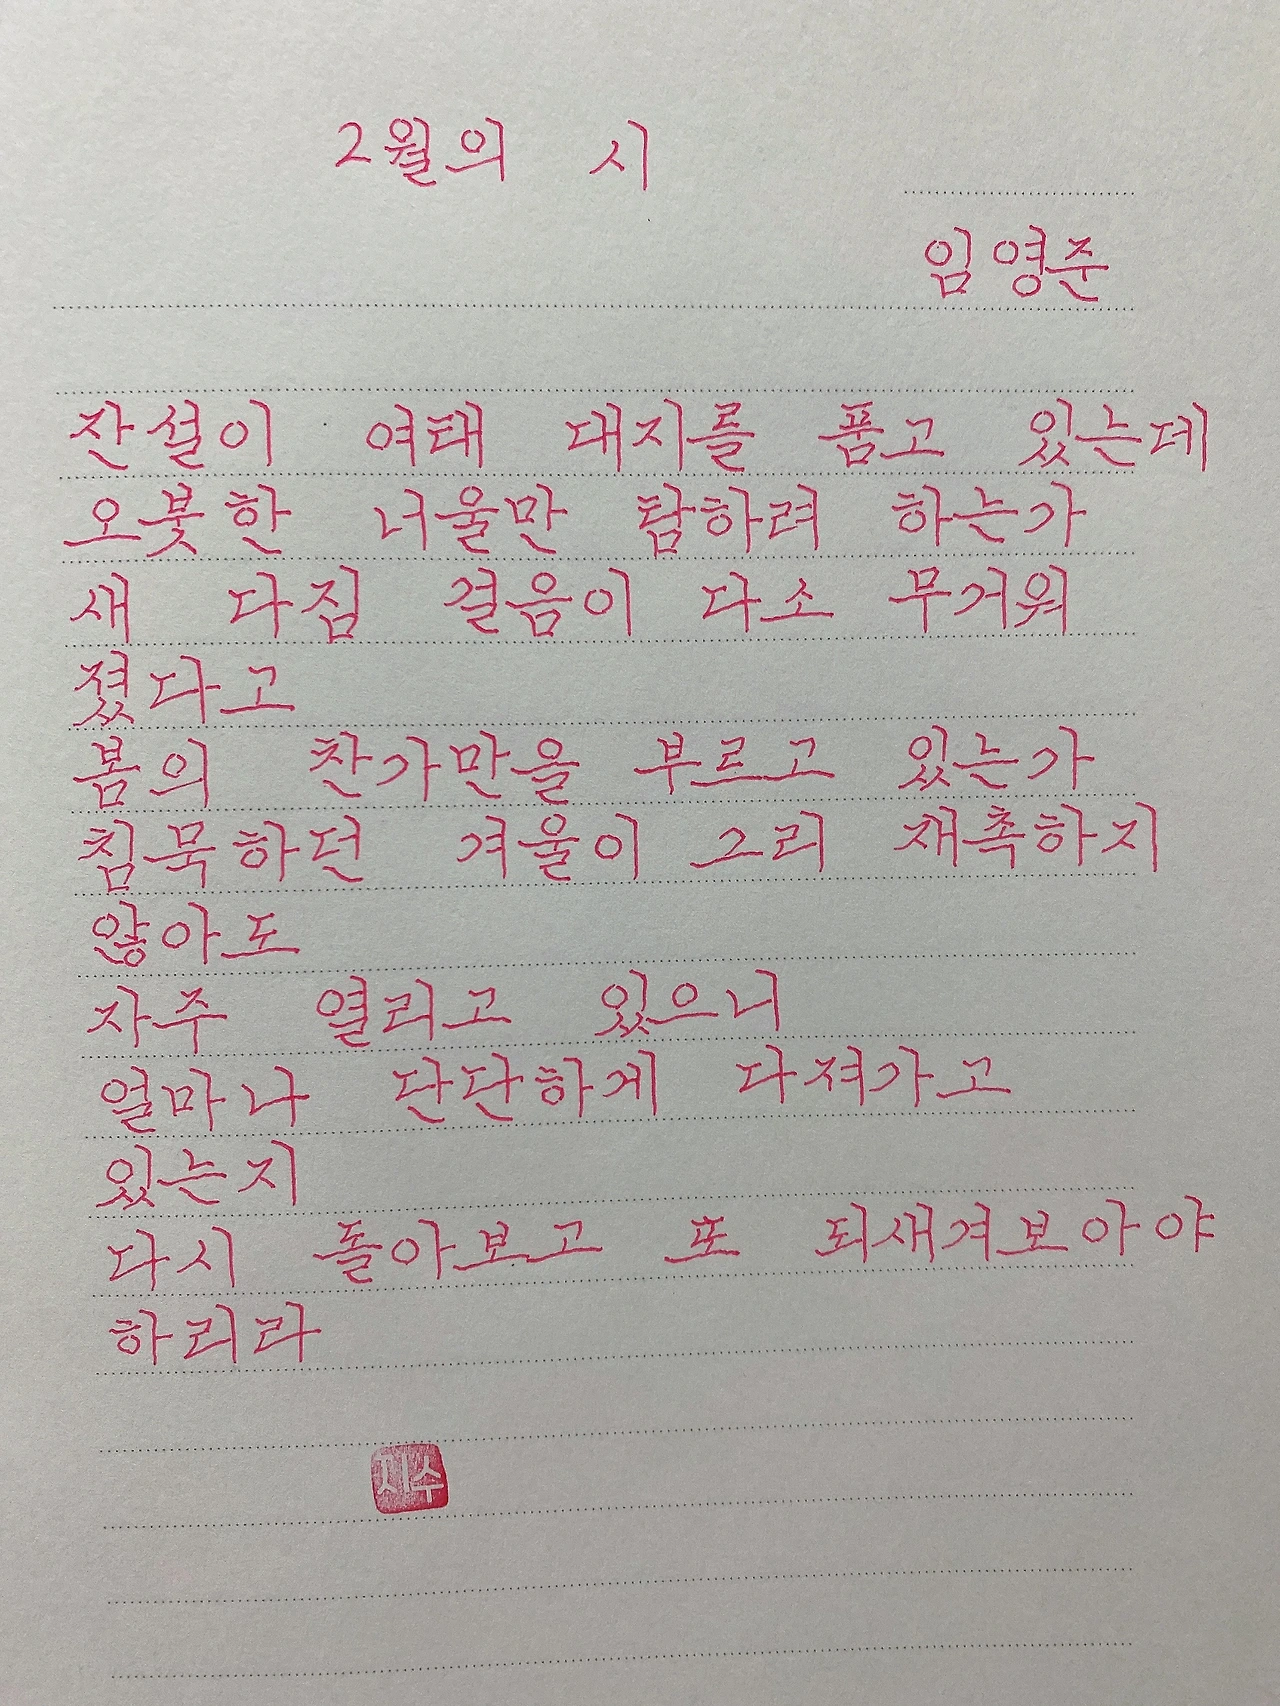 2월의 시
임영준
잔설이 여태 대지를 품고 있는데
오붓한 너울만 탐하려 하는가
새 다짐 걸음이 다소 무거워
졌다고
봄의 찬가만을 부르고 있는가
침묵하던 겨울이 그리 재촉하지
않아도
자주 열리고 있으니
얼마나 단단하게 다져가고
있는지
다시 돌아보고 또 되새겨보아야
하리라
지수